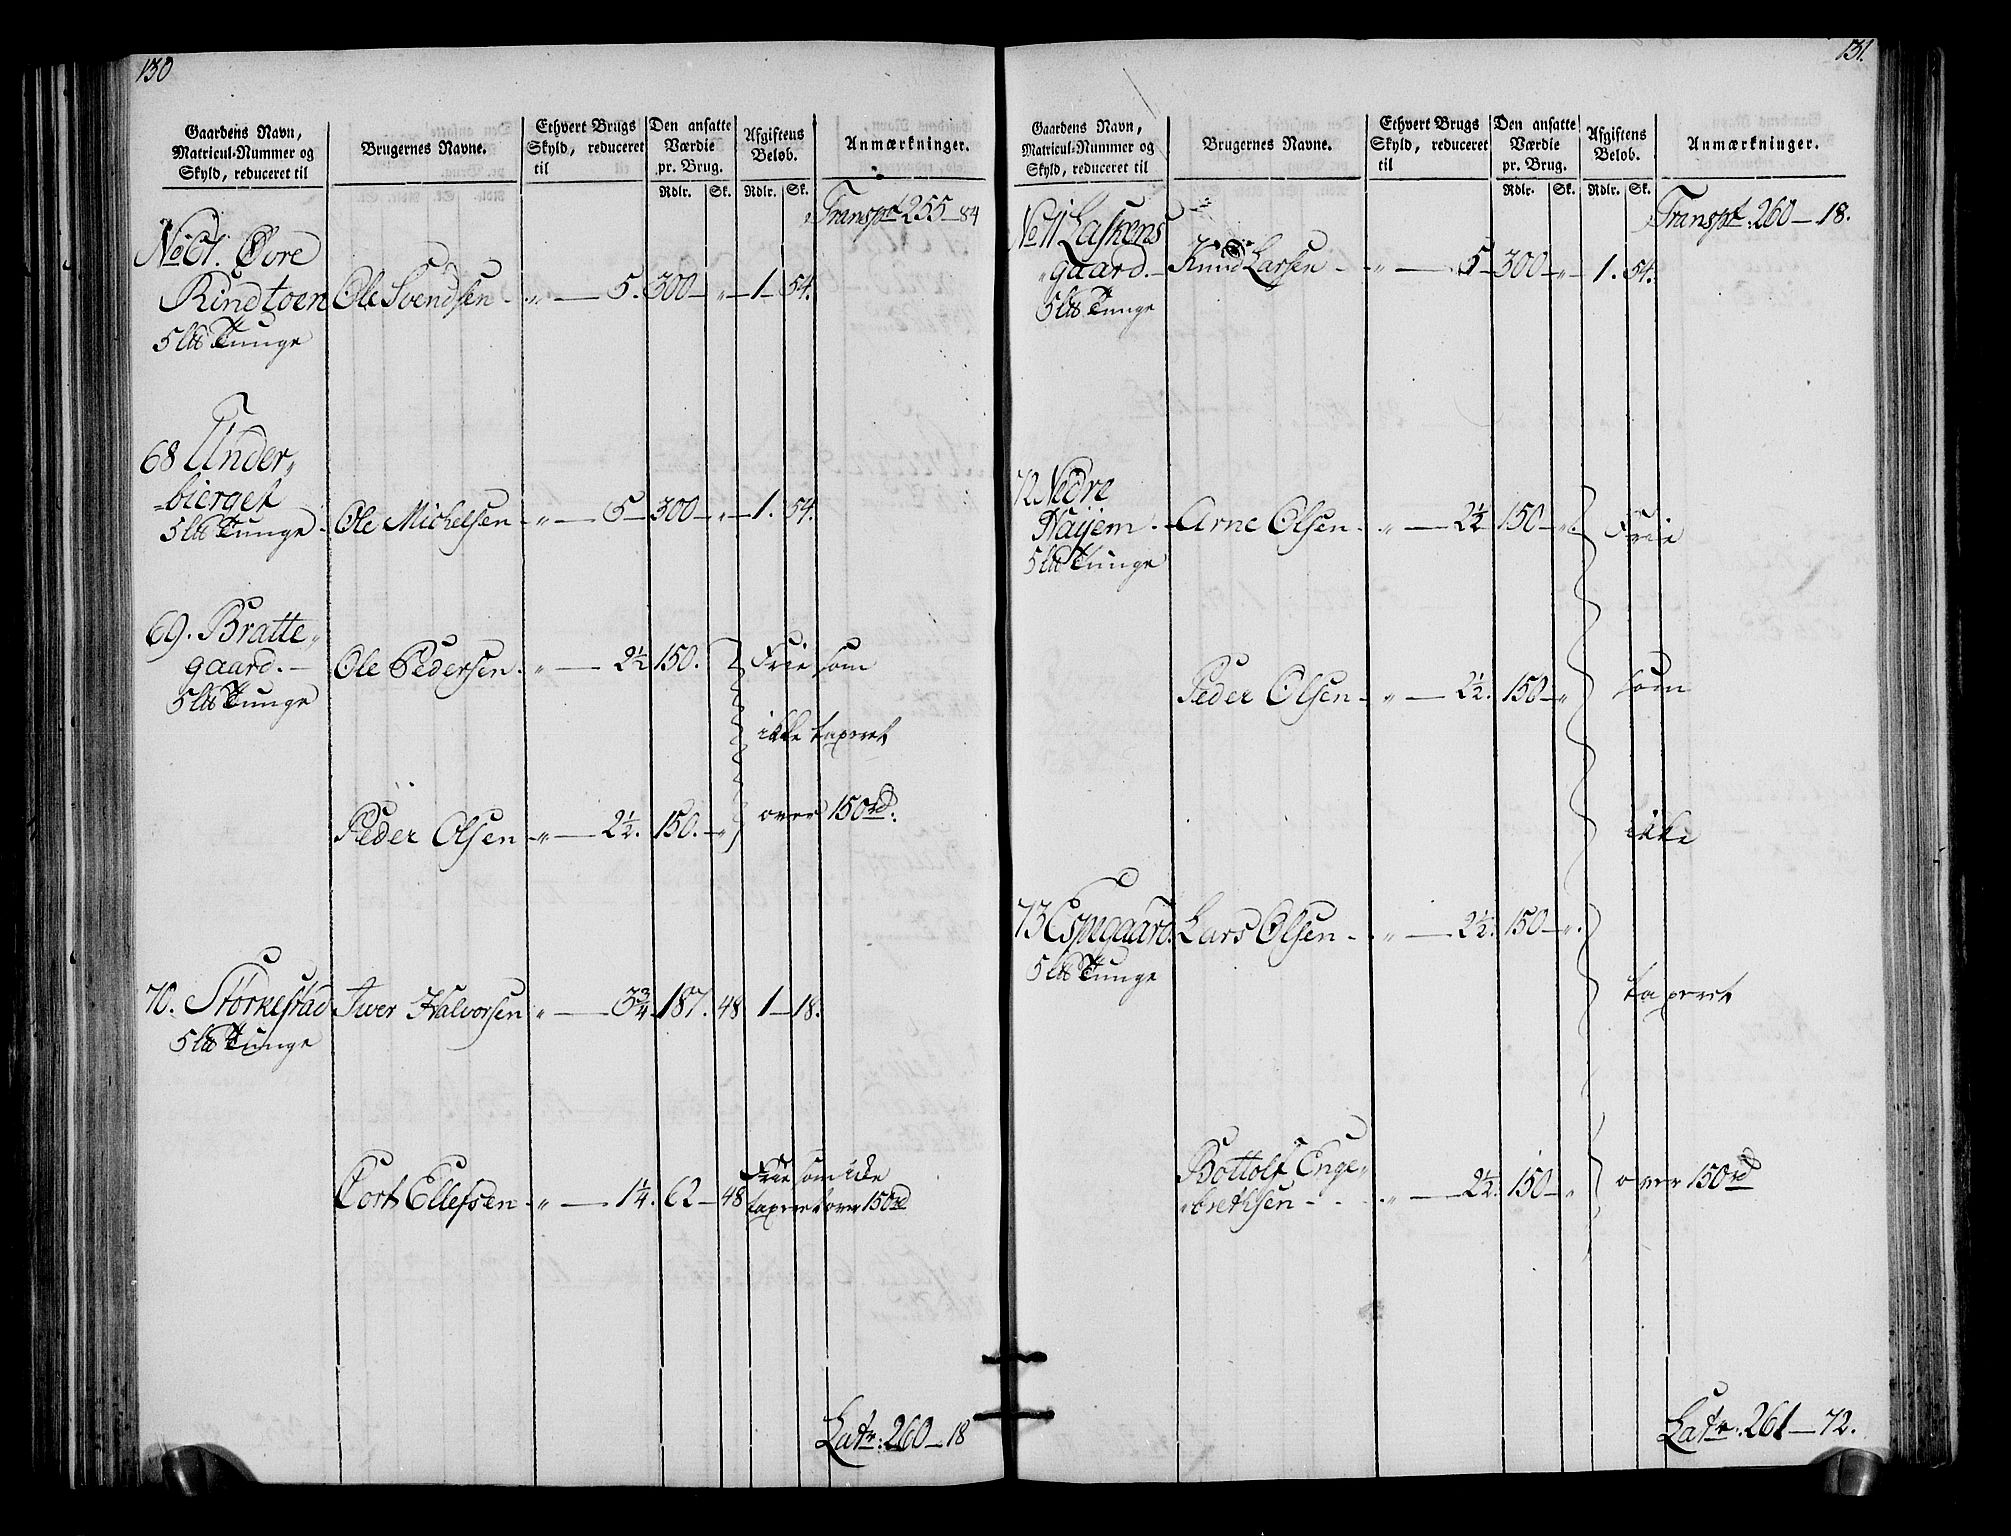 130
Gaardens Navn,
Matricul-Nummer og
Skyld, reduceret til
Brugernes Navne.
Ethvert Brugs
Skyld, reduceret
til
Den ansatte
Værdie
pr. Brug.
Rdlr. Sk.
Afgiftens
Beløb.
Rdlr. Sk.
Anmærkninger.
Transpt 255-84
No 67. Øvre
Rindtoen Ole Svendsen - „ - 5. 300 - „ - 1 - 54.
5 lb Tunge
68 Under„
-bierget
5 lb Tunge - Ole Michelsen - „ - 5 - 300 - „ - 1. 54.
69. Bratte„
gaard. - Ole Pedersen. „ - 2½ 150. Frie som
5 lb Tunge
ikke taxeret
Peder Olsen - „ - 2½. 150. - „ over 150 rd.
70. Storkestad Iver Halvorsen „ - 3¾. 187. 48 1 - 18.
5 lb Tunge
Cort Ellefsen - „ - 1¼. 62 - 48 Frie som ikke
taxeret over 150 rd
Latr: 260 - 18
131.
Gaardens Navn,
Matricul-Nummer og
Skyld, reduceret til
Brugernes Navne.
Ethvert Brugs
Skyld, reduceret
til
Den ansatte
Værdie
pr. Brug.
Rdlr. Sk.
Afgiftens
Beløb.
Rdlr. Sk.
Anmærkninger.
Transpt: 260 - 18.
No 71 Laskens
„gaard. - Knud Larsen - „ - 5 - 300 - „ 1. 54.
5 lb Tunge
72 Nedre
Naijem. - Arne Olsen - „ - 2½ 150 - „ Frie
5 lb Tunge
Peder Olsen - „ - 2½. 150 - „ som
ikke
73 Espegaard. Lars Olsen - „ - 2½. 150 - „.
5 lb Tunge
taxeret
Bottolf Enge„
„brethsen - - „ - 2½. 150 - „ over 150 rd
Latr: 261 - 72.